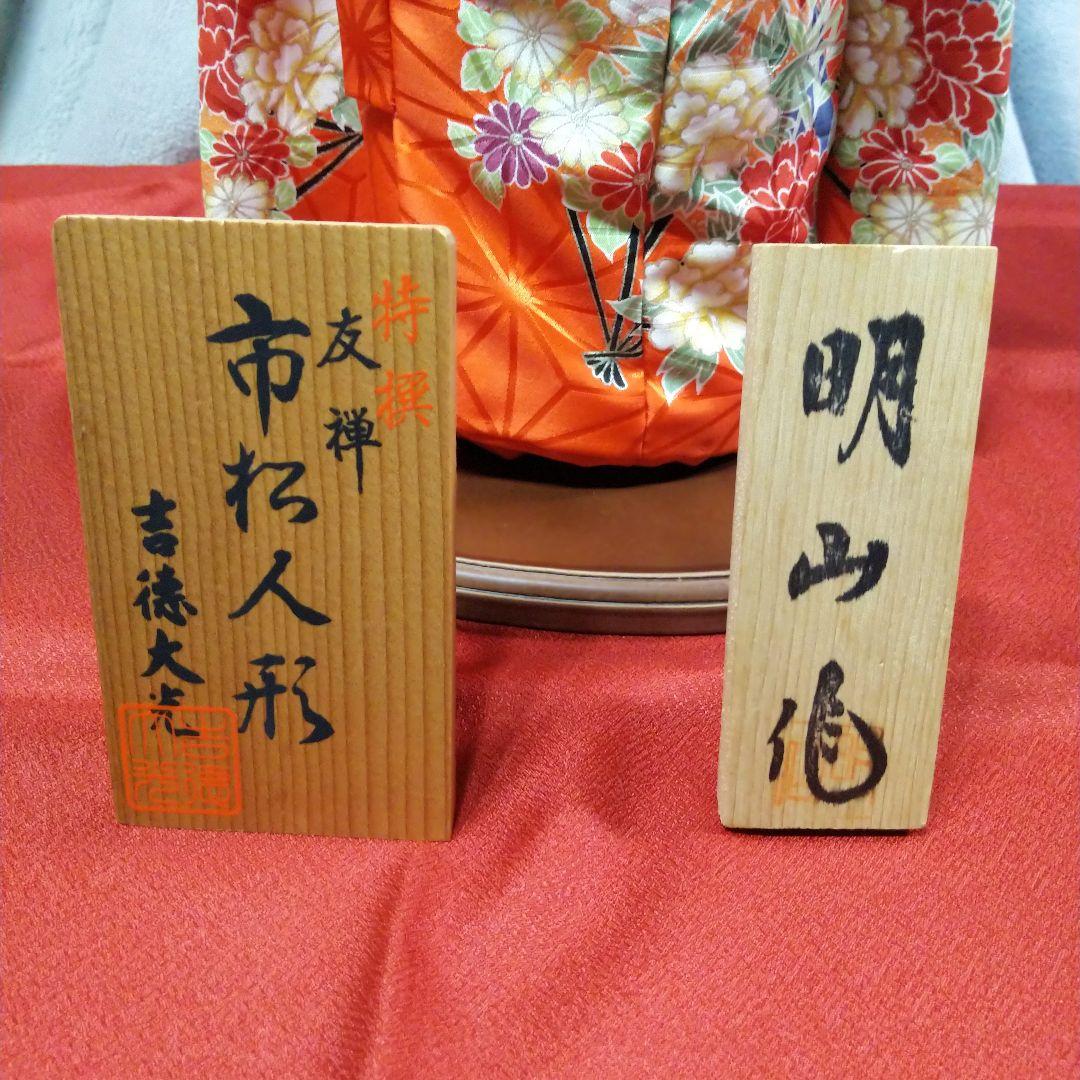 特撰
友禅
市松人形
吉徳大光
明山作